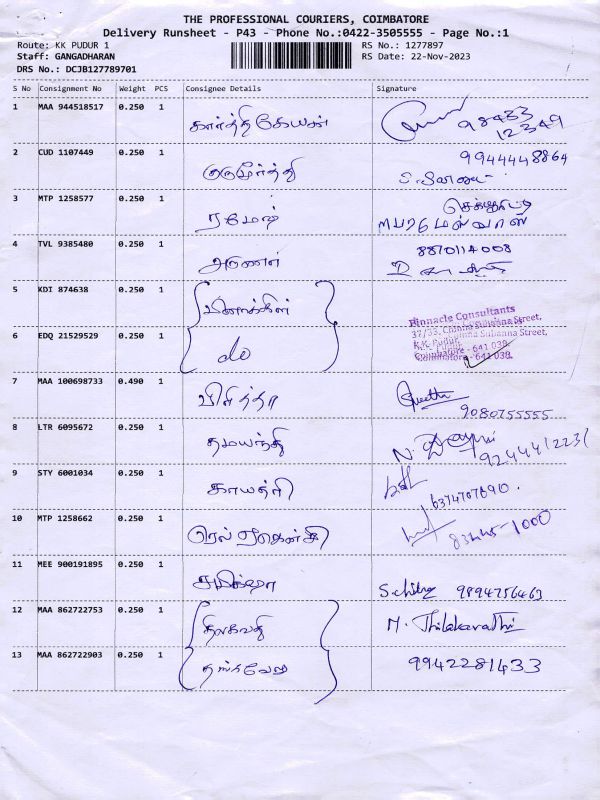 THE PROFESSIONAL COURIERS, COIMBATORE
Delivery Runsheet - P43 - Phone No.:0422-3505555 - Page No.:1
Route: KK PUDUR 1 RS No.: 1277897
Staff: GANGADHARAN RS Date: 22-Nov-2023
DRS No.: DCJB127789701
S No Consignment No Weight PCS Consignee Details Signature
1 MAA 944518517 0.250 1 கார்த்திகேயன் 98433
12349
2 CUD 1107449 0.250 1 குருமூர்த்தி 9944448864
3 MTP 1258577 0.250 1 ரமேஷ்
4 TVL 9385480 0.250 1 அருணா 8870114008
5 KDI 874638 0.250 1
Pinnacle Consultants
37/33, Chinna Subanna Street,
K.K. Pudur,
Coimbatore - 641 038.
6 EDQ 21529529 0.250 1 do
7 MAA 100698733 0.490 1 Preethi
9080755555
8 LTR 6095672 0.250 1 தமயந்தி N.
9244412231
9 STY 6001034 0.250 1 காயத்ரி
6374707690.
10 MTP 1258662 0.250 1 83445-1000
11 MEE 900191895 0.250 1 9894756463
12 MAA 862722753 0.250 1 திலகவதி M. Thilakavathi
13 MAA 862722903 0.250 1 தங்கவேலு 9942281433